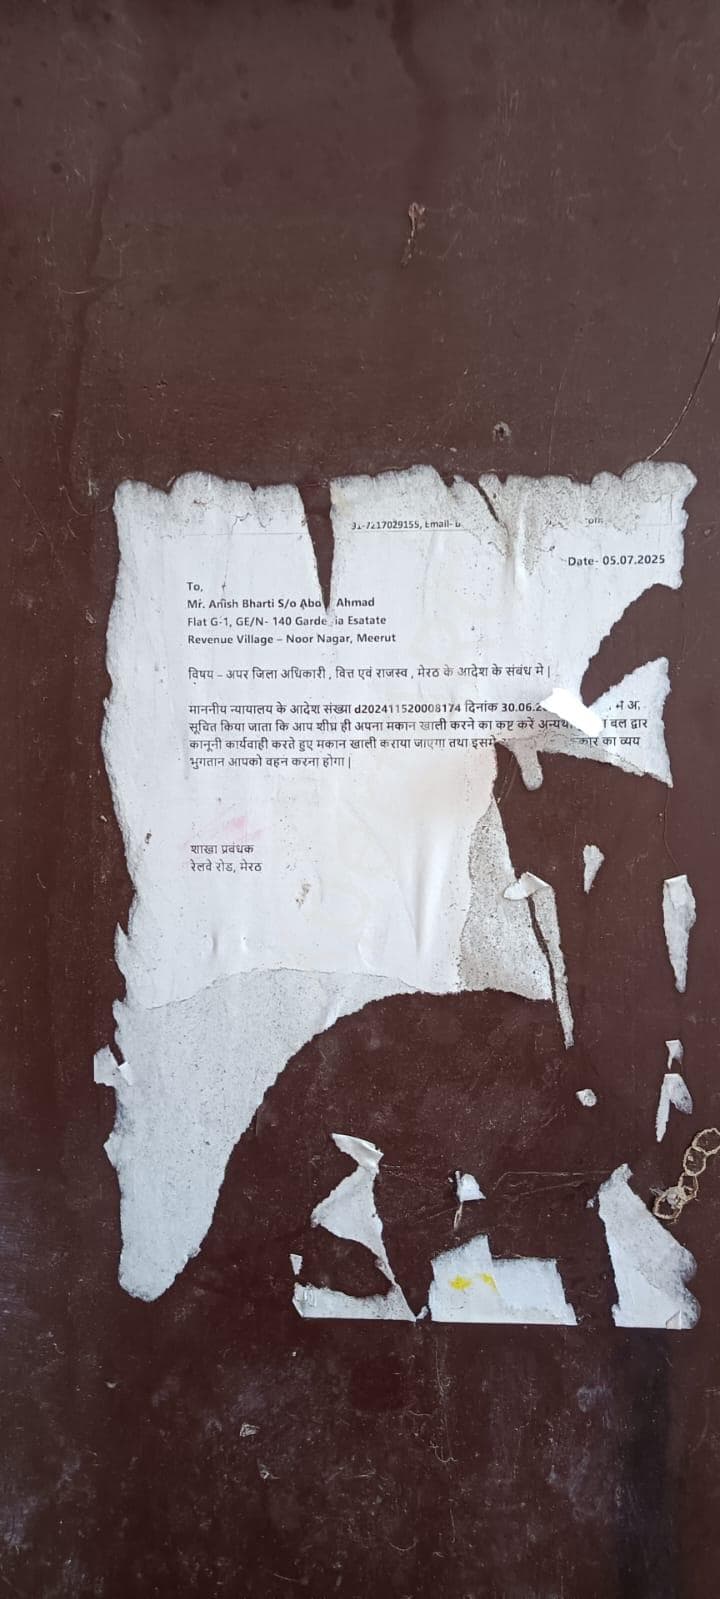 91-7217029155, Email-
Date- 05.07.2025
To,
Mr. Anish Bharti S/o Ahmad
Flat G-1, GE/N- 140 Esatate
Revenue Village – Noor Nagar, Meerut
विषय – अपर जिला अधिकारी , वित्त एवं राजस्व , मेरठ के आदेश के संबंध मे |
माननीय न्यायालय के आदेश संख्या d202411520008174 दिनांक 30.06.2
सूचित किया जाता कि आप शीघ्र ही अपना मकान खाली करने का कष्ट करें बल द्वार
कानूनी कार्यवाही करते हुए मकान खाली कराया जाएगा तथा का व्यय
भुगतान आपको वहन करना होगा |
शाखा प्रबंधक
रेलवे रोड, मेरठ